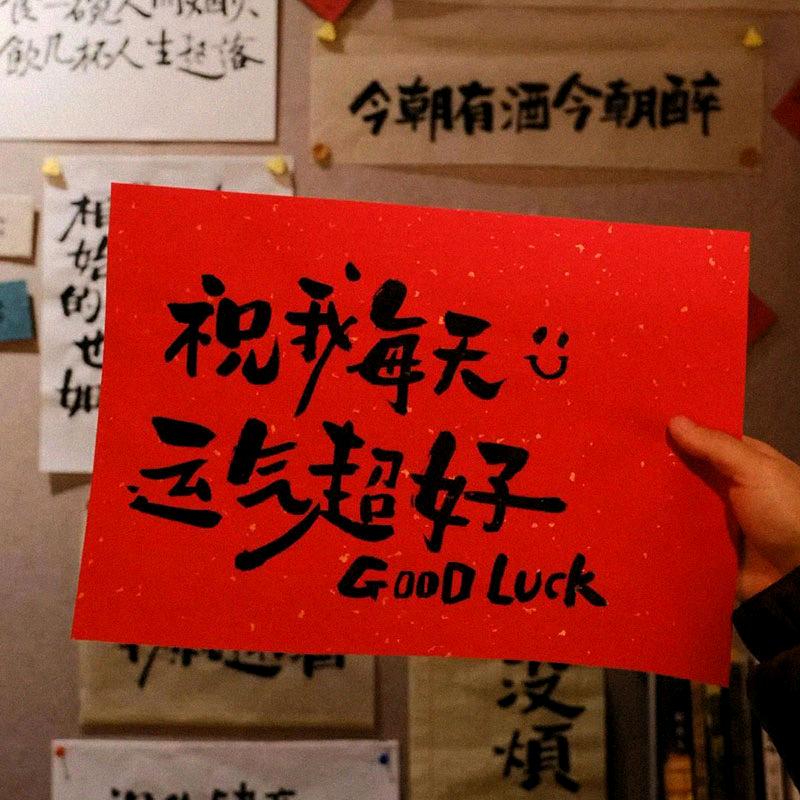 飲几杯人生起落
今朝有酒今朝醉
相
始
的
也
如
祝我每天
运气超好
GOOD LUCK
没
煩